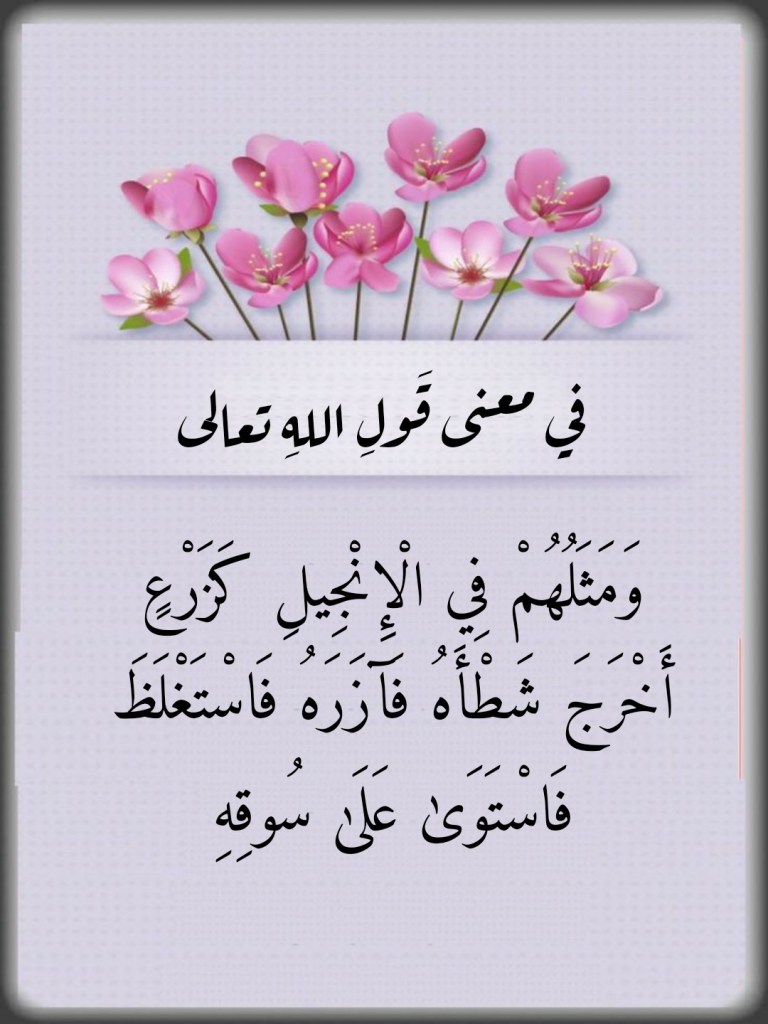 في معنى قَولِ اللهِ تعالى
وَمَثَلُهُمْ فِي الْإِنْجِيلِ كَزَرْعٍ
أَخْرَجَ شَطْأَهُ فَآزَرَهُ فَاسْتَغْلَظَ
فَاسْتَوَىٰ عَلَىٰ سُوقِهِ